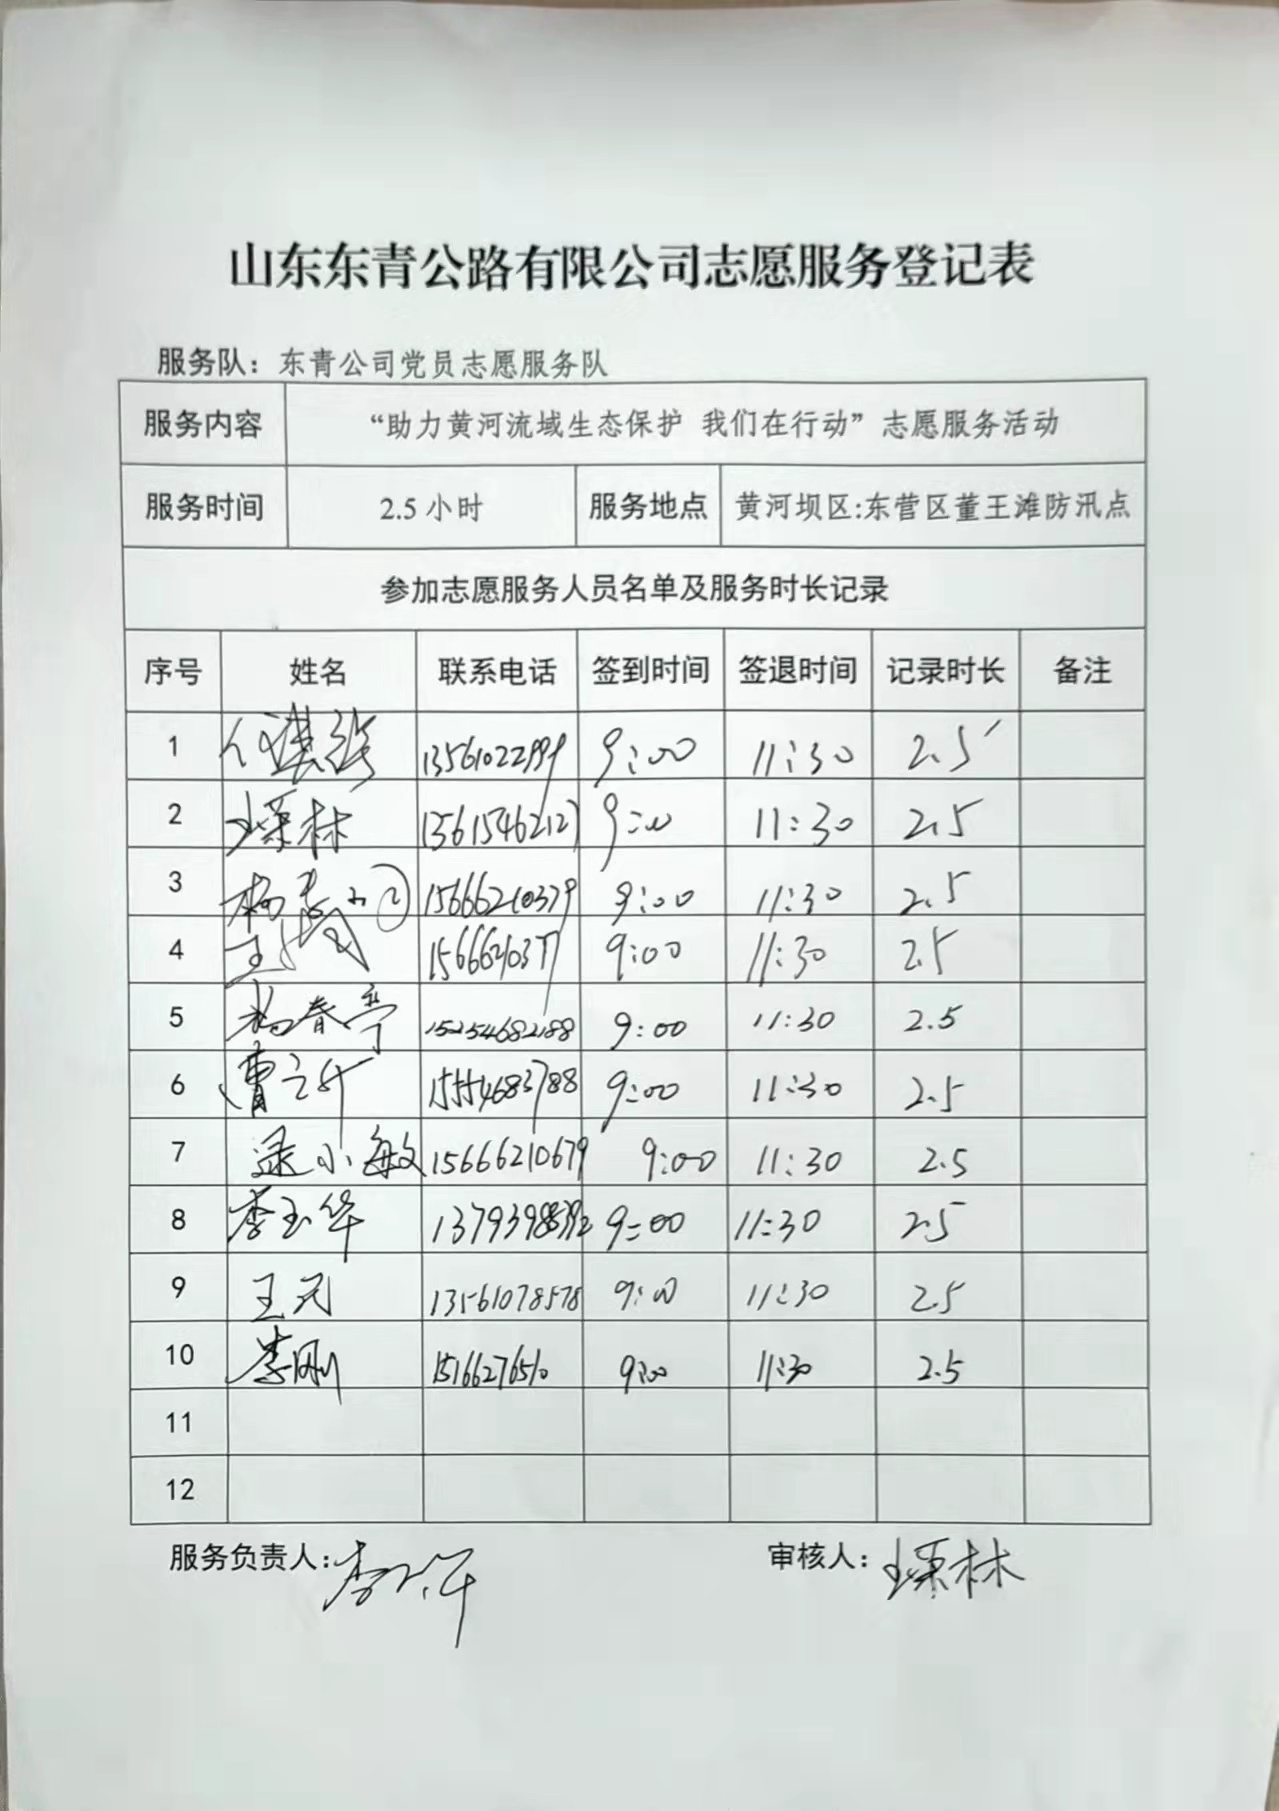 山东东青公路有限公司志愿服务登记表
服务队：东青公司党员志愿服务队
服务内容 “助力黄河流域生态保护 我们在行动”志愿服务活动
服务时间 2.5小时 服务地点 黄河坝区:东营区董王滩防汛点
参加志愿服务人员名单及服务时长记录
序号 姓名 联系电话 签到时间 签退时间 记录时长 备注
1 9:00 11:30 2.5
2 13561546212 9:00 11:30 2.5
3 15666210379 9:00 11:30 2.5
4 9:00 11:30 2.5
5 杨春亭 15254682188 9:00 11:30 2.5
6 15554683788 9:00 11:30 2.5
7 梁小敏 15666210679 9:00 11:30 2.5
8 李玉华 9:00 11:30 2.5
9 13561078578 9:00 11:30 2.5
10 李刚 15166276510 9:00 11:30 2.5
11
12
服务负责人: 审核人: